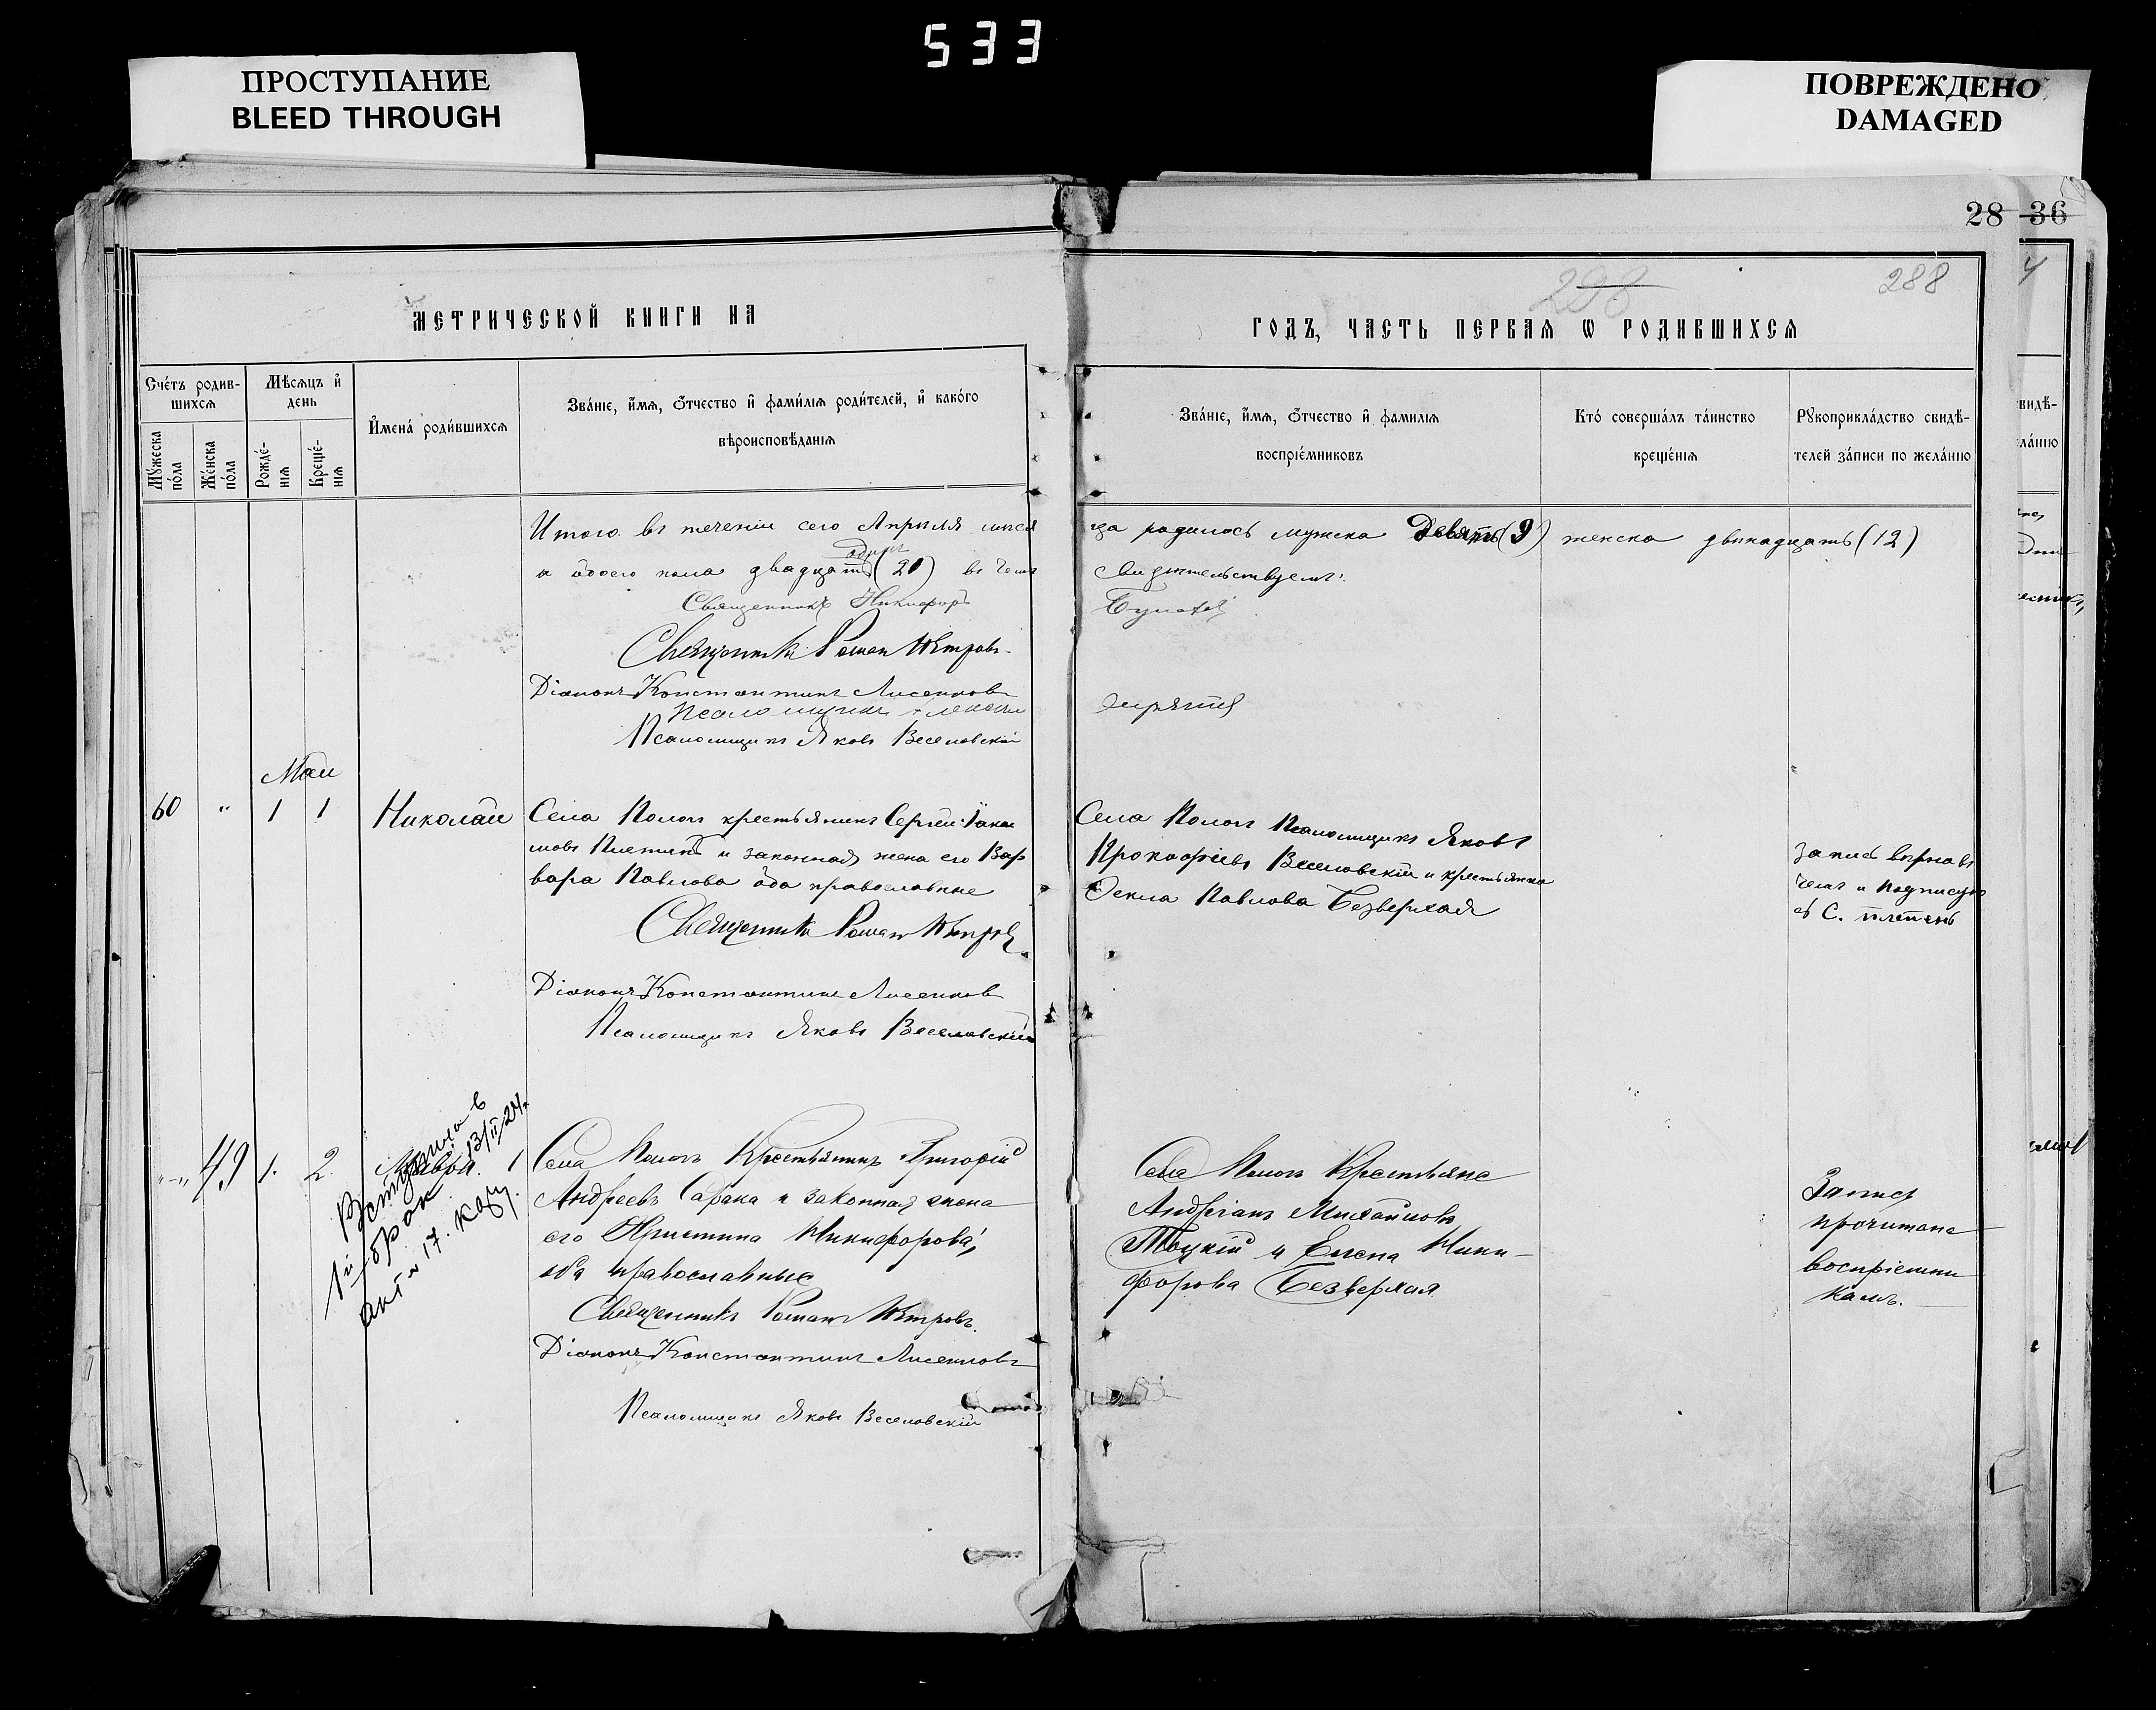 533
ПРОСТУПАНИЕ
BLEED THROUGH
ПОВРЕЖДЕНО
DAMAGED
28 36
298
288
МЕТРИЧЕСКОЙ КНИГИ НА
ГОДЪ, ЧАСТЬ ПЕРВАѦ Ѡ РОДИВШИХСѦ
Счéтъ родив-
шихсѧ
Мѣсѧцъ и҆
день
Мꙋ́жеска
пóла
Жéнска
пóла
Рождé-
нїѧ
Крещé-
нїѧ
И҆менá роди́вшихсѧ
Звáнїе, и҆́мѧ, ѻ҆́тчество и҆ фами́лїѧ роди́телей, и҆ какóго
вѣроисповѣ́данїѧ
Звáнїе, и҆́мѧ, ѻ҆́тчество и҆ фами́лїѧ
воспрїéмниковъ
Ктó совершáлъ тáинство
крещéнїѧ
Рꙋкоприклáдство свидѣ́-
телей зáписи по желáнїю
Итого въ теченіи сего Апрѣля мѣся
ца родилось мужска Девять (9) женска двѣнадцать (12)
а обоего пола двадцать одинъ (21) въ чемъ
свидѣтельствуемъ:
Священникъ Никифоръ
Священникъ Романъ Петровъ
Діаконъ Константинъ Лисенковъ
Псаломщикъ
Псаломщикъ Яковъ Веселовскій
Май
60 " 1 1 Николай
Села Пологъ крестьянинъ Сергѣй Іаки
мовъ Плетень и законная жена его Вар
вара Павлова оба православные
Священникъ Романъ Петровъ
Діаконъ Константинъ Лисенковъ
Псаломщикъ Яковъ Веселовскій
Села Пологъ Псаломщикъ Яковъ
Прокофіевъ Веселовскій и крестьянка
Ѳекла Павлова Безверхая
Запись вѣрна въ
чемъ и подписую
съ С. Плетень
" 49 1. 2.
Вступила в
1й брак 13/II 24 г.
акт № 17.
Села Пологъ Крестьянинъ Григорій
Андреевъ Сарана и законная жена
его Христина Никифорова,
оба православные
Священникъ Романъ Петровъ.
Діаконъ Константинъ Лисенковъ
Псаломщикъ Яковъ Веселовскій
Села Пологъ Крестьяне
Андріанъ Михайловъ
Тоцкій и Елена Ники-
форова Безверхая
Запись
прочитана
воспріемни
камъ.